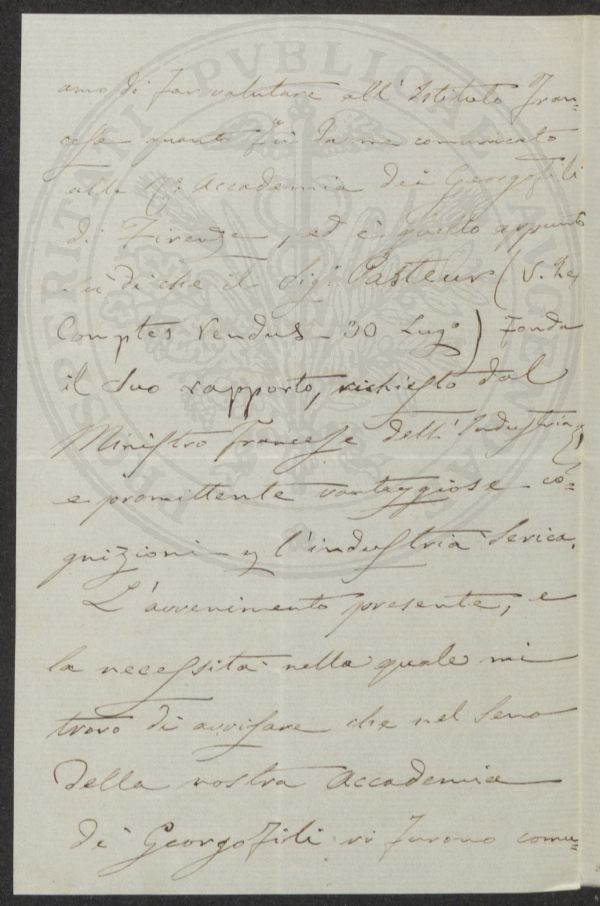 amo di far valutare all' Istituto Fran=
cese quanto fù da me comunicato
alla R.ª Accademia dei Georgofili
di Firenze, ed è quello appunto
su di che il Sig.r Pasteur (V. Les
Comptes Rendus - 30 Lug.º) fonda
il suo rapporto, richiesto dal
Ministro Francese dell' Industria,
e promittente vantaggiose co=
gnizioni p l'industria serica.
L'avvenimento presente, e
la necessità nella quale mi
trovo di avvisare che nel seno
della nostra Accademia
dei Georgofili vi furono comu=
PROSPERITATI PVBLICAE AVGENDAE